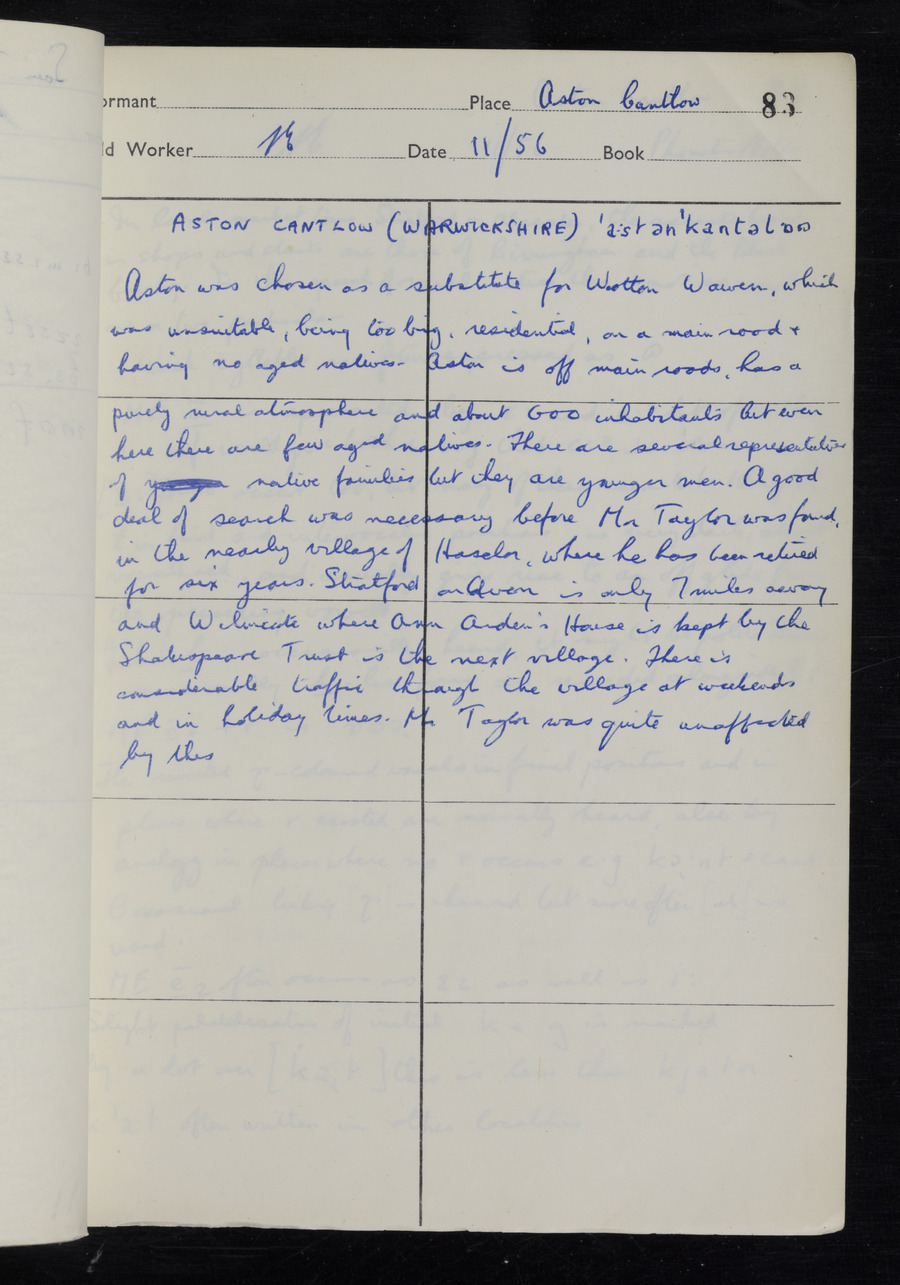 ormant Place Aston Cantlow 83
ld Worker Date 11/56 Book
ASTON CANTLOW (WARWICKSHIRE)
Aston was chosen as a substitute for Wootton Wawen, which
was unsuitable, being too big, residential, on a main road +
having no aged natives. Aston is off main roads, has a
purely rural atmosphere and about 600 inhabitants but even
here there are few aged natives. There are several representatives
of native families but they are younger men. A good
deal of search was necessary before Mr Taylor was found,
in the nearby village of Haselor, where he has been retired
for six years. Stratford on Avon is only 7 miles away
and Wilmcote where Ann Arden's House is kept by the
Shakespeare Trust is the next village. There is
considerable traffic through the village at weekends
and in holiday times. Mr Taylor was quite unaffected
by this